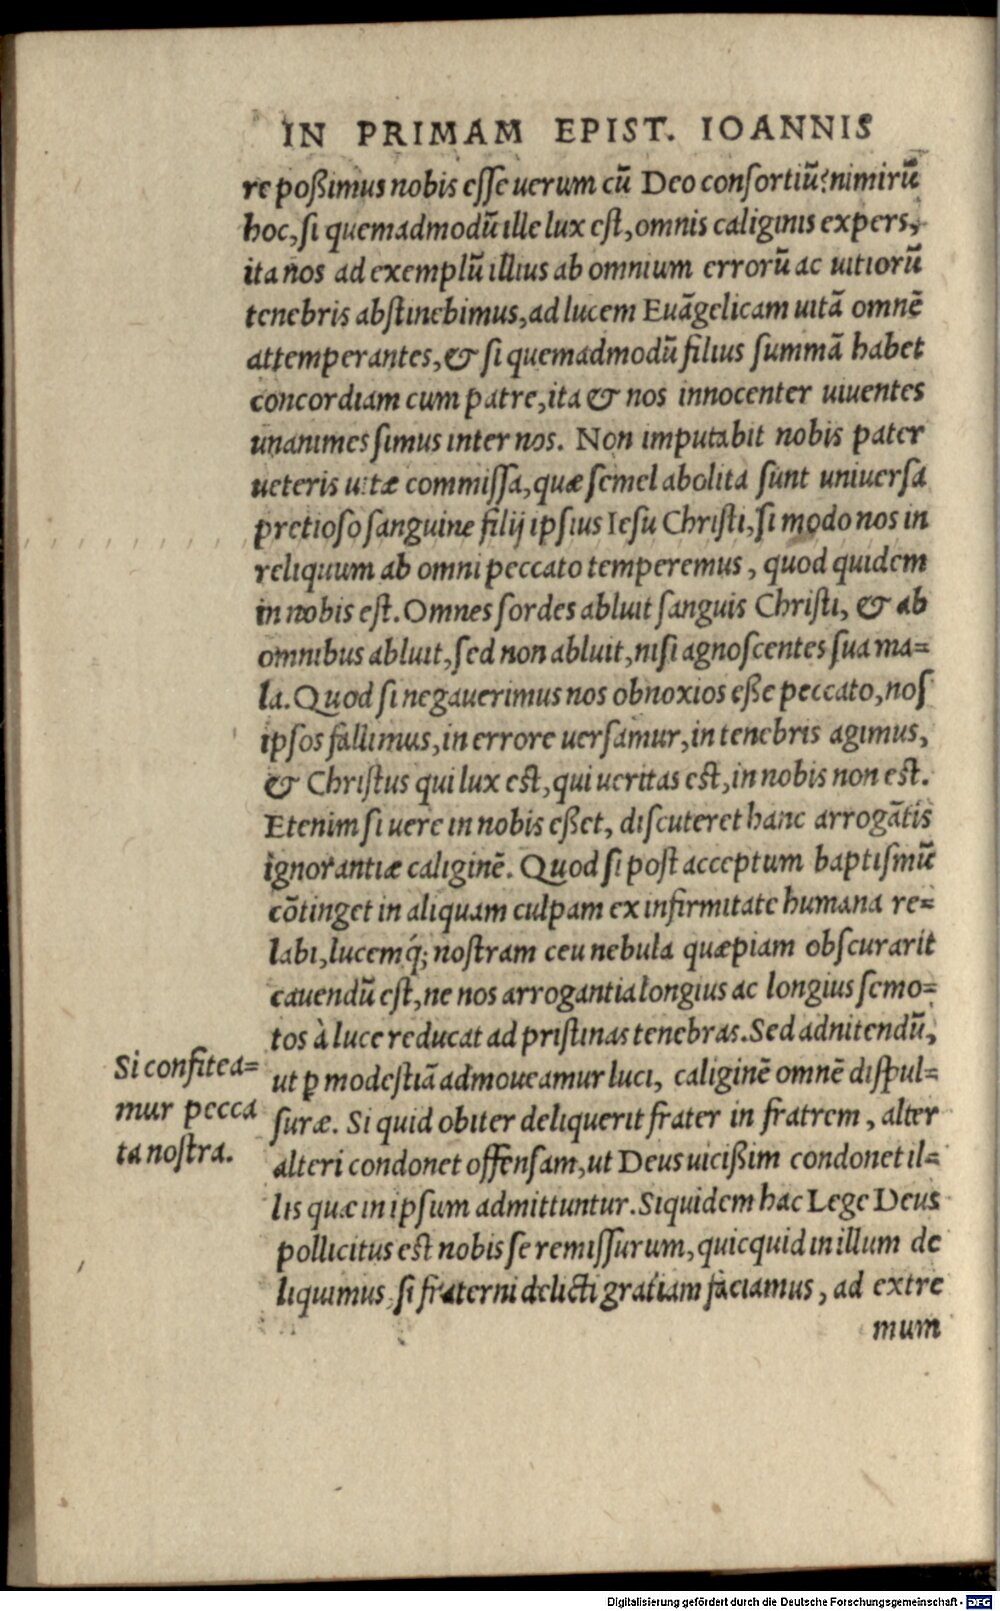 IN PRIMAM EPIST. IOANNIS
re poßimus nobis esse uerum cū Deo consortiū? nimirū
hoc, si quemadmodū ille lux est, omnis caliginis expers,
ita nos ad exemplū illius ab omnium errorū ac uitiorū
tenebris abstinebimus, ad lucem Euãgelicam uitã omnē
attemperantes, & si quemadmodū filius summã habet
concordiam cum patre, ita & nos innocenter uiuentes
unanimes simus inter nos. Non imputabit nobis pater
ueteris uitæ commissa, quæ semel abolita sunt uniuersa
pretioso sanguine filij ipsius Iesu Christi, si modo nos in
reliquum ab omni peccato temperemus, quod quidem
in nobis est. Omnes sordes abluit sanguis Christi, & ab
omnibus abluit, sed non abluit, nisi agnoscentes sua ma=
la. Quod si negauerimus nos obnoxios eße peccato, nos
ipsos fallimus, in errore uersamur, in tenebris agimus,
& Christus qui lux est, qui ueritas est, in nobis non est.
Etenim si uere in nobis eßet, discuteret hanc arrogãtis
ignorantiæ caliginē. Quod si post acceptum baptismū
cōtinget in aliquam culpam ex infirmitate humana re=
labi, lucemq́; nostram ceu nebula quæpiam obscurarit
cauendū est, ne nos arrogantia longius ac longius semo=
tos à luce reducat ad pristinas tenebras. Sed adnitendū,
ut ꝑ modestiã admoueamur luci, caliginē omnē dispul=
suræ. Si quid obiter deliquerit frater in fratrem, alter
alteri condonet offensam, ut Deus uicißim condonet il=
lis quæ in ipsum admittuntur. Siquidem hac Lege Deus
pollicitus est nobis se remissurum, quicquid in illum de
liquimus, si fraterni delicti gratiam faciamus, ad extre
mum
Si confitea=
mur pecca
ta nostra.
Digitalisierung gefördert durch die Deutsche Forschungsgemeinschaft - DFG